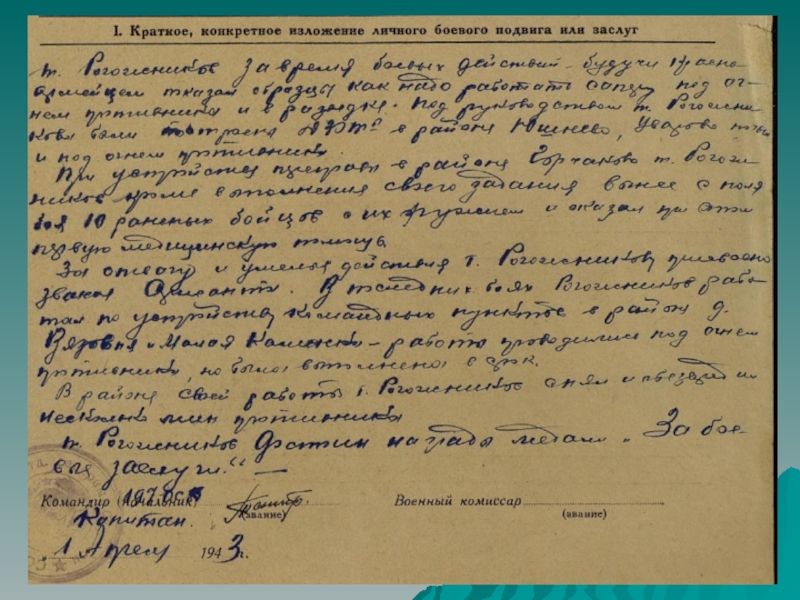 I. Краткое, конкретное изложение личного боевого подвига или заслуг
т. Рогожников за время боевых действий будучи красно
армейцем показал образцы как надо работать саперу под ог-
нем противника и в разведке. Под руководством т. Рогожни
кова были построены в районе Юшнево, Уварово
и под огнем противника.
При устройстве переправы в районе Горчаково т. Рогож
ников кроме выполнения своего задания вынес с поля
боя 10 раненых бойцов с их оружием и оказал при этом
первую медицинскую помощь
За отвагу и умелые действия т. Рогожникову присвоено
звание Сержанта. В последних боях Рогожников рабо-
тал по устройству командных пунктов в районе д.
Вязовня и Малая Каменка – работы проводились под огнем
противника, но были выполнены в срок.
В районе своей работы т. Рогожников снял и обезвредил
несколько мин противника
т. Рогожников достоин награды медали „За бое-
вые заслуги." —
Командир (начальник)
Военный комиссар
Капитан
(звание)
(звание)
1 Апреля 1943 г.